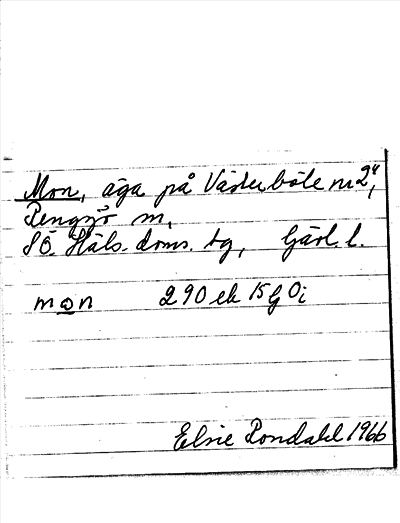 Mon, äga på Västerböle nr 2⁴,
Rengsjö sn,
SÖ. Häls. doms. tg, Gävl. l.
mon 290 ek 15 G Oi
Elsie Rondahl 1966